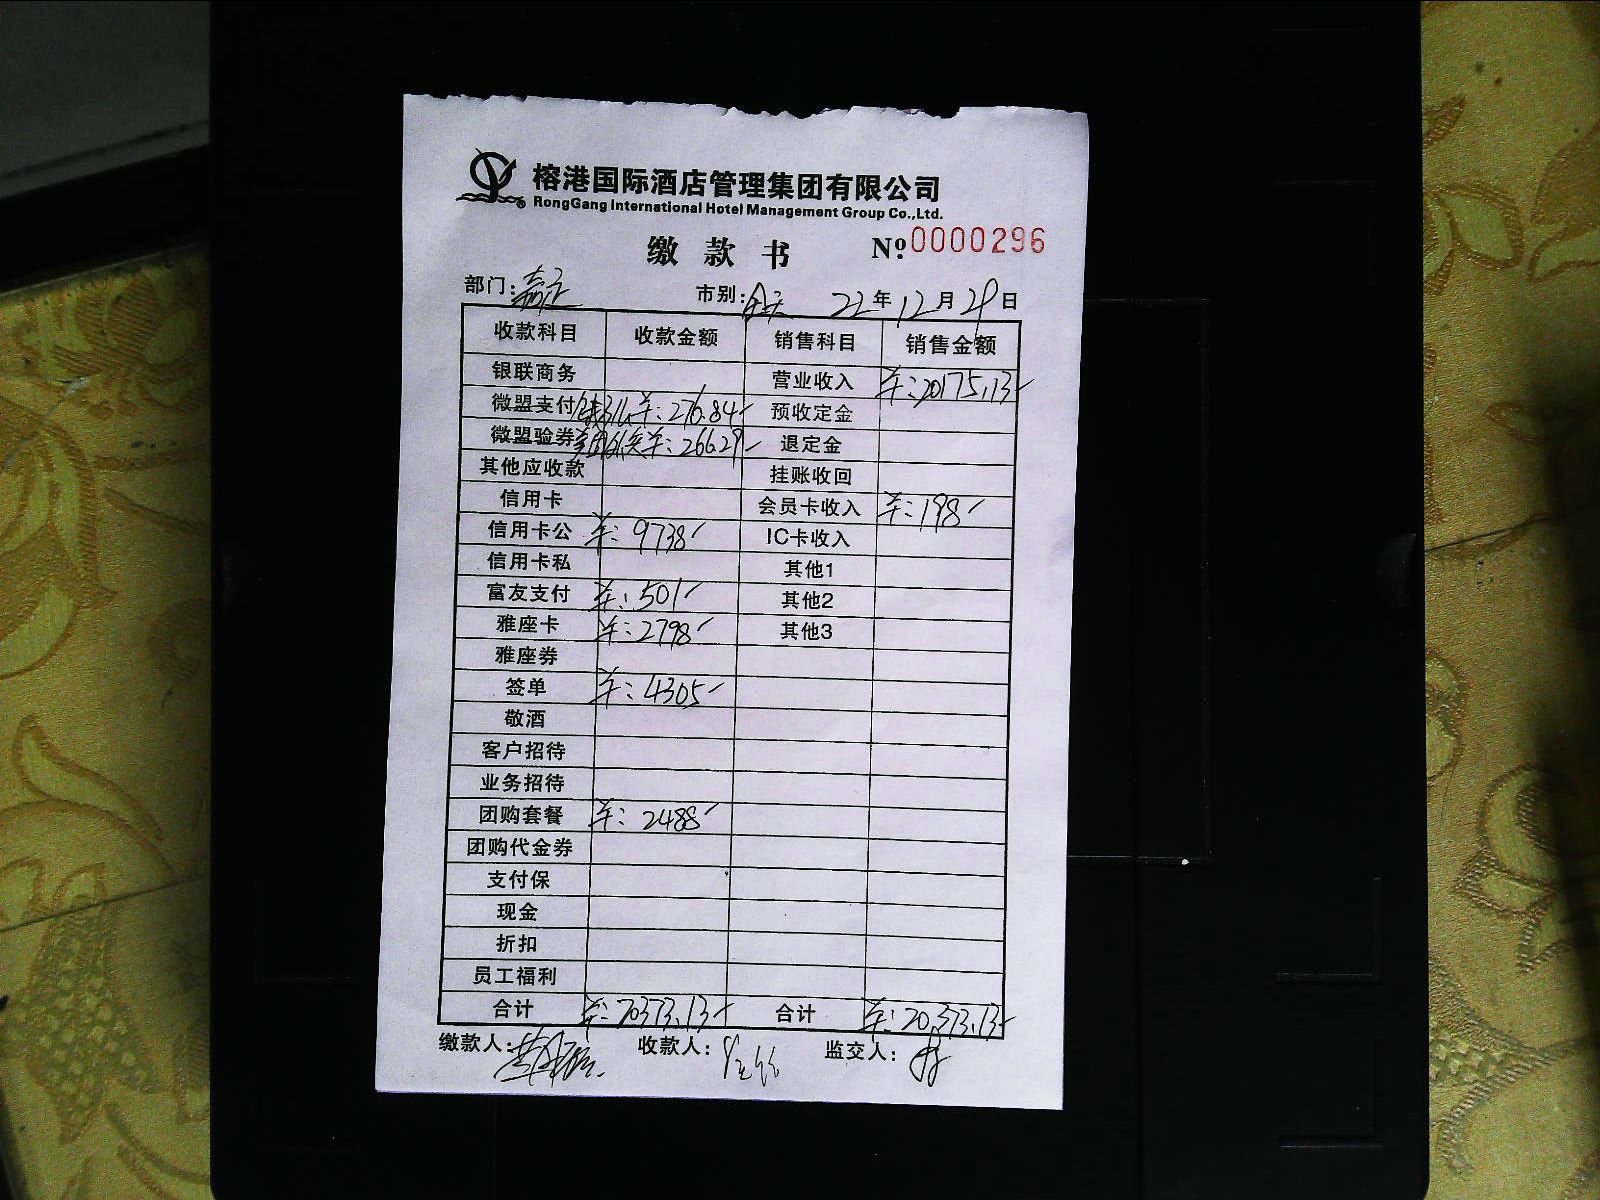 榕港国际酒店管理集团有限公司
RongGang International Hotel Management Group Co.,Ltd.
缴款书 Nº:0000296
部门: 市别:全天 22年12月29日
收款科目 收款金额 销售科目 销售金额
银联商务 营业收入 ¥:20175.13
微盟支付 ¥:276.84 预收定金
微盟验券 美团外卖¥:266.29 退定金
其他应收款 挂账收回
信用卡 会员卡收入 ¥:198
信用卡公 ¥:9738 IC卡收入
信用卡私 其他1
富友支付 ¥:501 其他2
雅座卡 ¥:2798 其他3
雅座券
签单 ¥:4305
敬酒
客户招待
业务招待
团购套餐 ¥:2488
团购代金券
支付保
现金
折扣
员工福利
合计 ¥:20373.13 合计 ¥:20,373.13
缴款人: 收款人: 监交人: